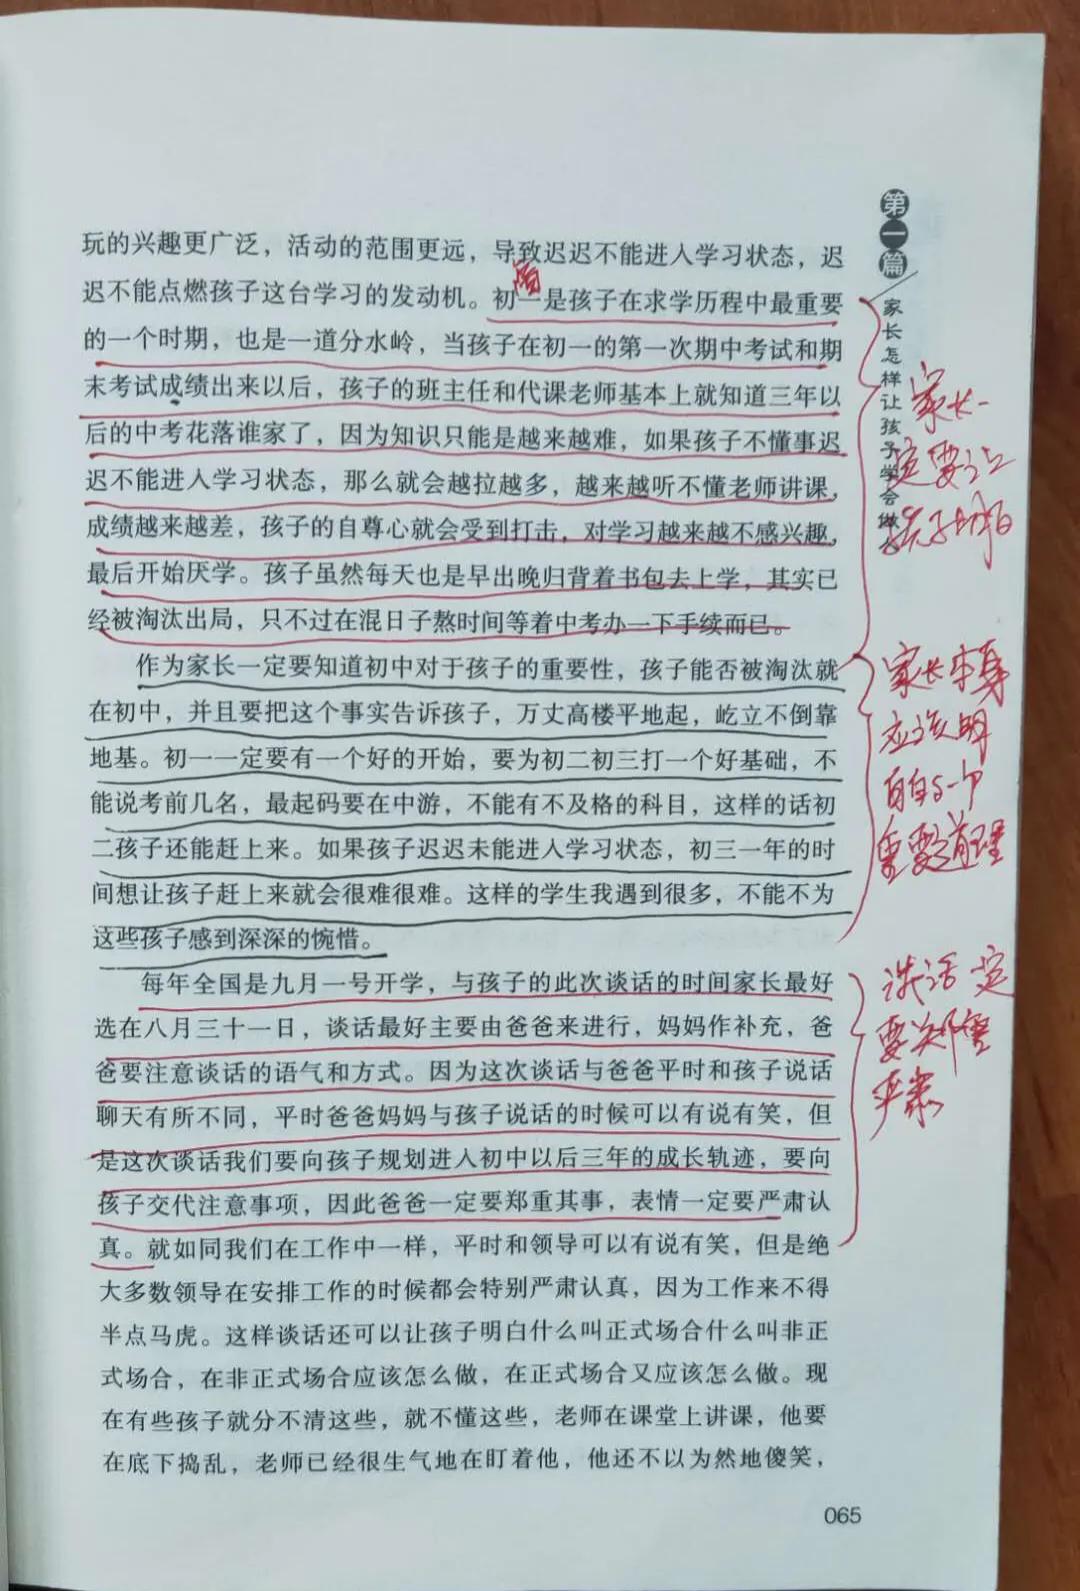 玩的兴趣更广泛，活动的范围更远，导致迟迟不能进入学习状态，迟
迟不能点燃孩子这台学习的发动机。初一是孩子在求学历程中最重要
的一个时期，也是一道分水岭，当孩子在初一的第一次期中考试和期
末考试成绩出来以后，孩子的班主任和代课老师基本上就知道三年以
后的中考花落谁家了，因为知识只能是越来越难，如果孩子不懂事迟
迟不能进入学习状态，那么就会越拉越多，越来越听不懂老师讲课，
成绩越来越差，孩子的自尊心就会受到打击，对学习越来越不感兴趣，
最后开始厌学。孩子虽然每天也是早出晚归背着书包去上学，其实已
经被淘汰出局，只不过在混日子熬时间等着中考办一下手续而已。
作为家长一定要知道初中对于孩子的重要性，孩子能否被淘汰就
在初中，并且要把这个事实告诉孩子，万丈高楼平地起，屹立不倒靠
地基。初一一定要有一个好的开始，要为初二初三打一个好基础，不
能说考前几名，最起码要在中游，不能有不及格的科目，这样的话初
二孩子还能赶上来。如果孩子迟迟未能进入学习状态，初三一年的时
间想让孩子赶上来就会很难很难。这样的学生我遇到很多，不能不为
这些孩子感到深深的惋惜。
每年全国是九月一号开学，与孩子的此次谈话的时间家长最好
选在八月三十一日，谈话最好主要由爸爸来进行，妈妈作补充，爸
爸要注意谈话的语气和方式。因为这次谈话与爸爸平时和孩子说话
聊天有所不同，平时爸爸妈妈与孩子说话的时候可以有说有笑，但
是这次谈话我们要向孩子规划进入初中以后三年的成长轨迹，要向
孩子交代注意事项，因此爸爸一定要郑重其事，表情一定要严肃认
真。就如同我们在工作中一样，平时和领导可以有说有笑，但是绝
大多数领导在安排工作的时候都会特别严肃认真，因为工作来不得
半点马虎。这样谈话还可以让孩子明白什么叫正式场合什么叫非正
式场合，在非正式场合应该怎么做，在正式场合又应该怎么做。现
在有些孩子就分不清这些，就不懂这些，老师在课堂上讲课，他要
在底下捣乱，老师已经很生气地在盯着他，他还不以为然地傻笑，
第一篇
家长怎样让孩子学会做人
家长一
定要让
孩子明白
家长本身
应该明
白的一个
重要道理
谈话一定
要郑重
严肃
065